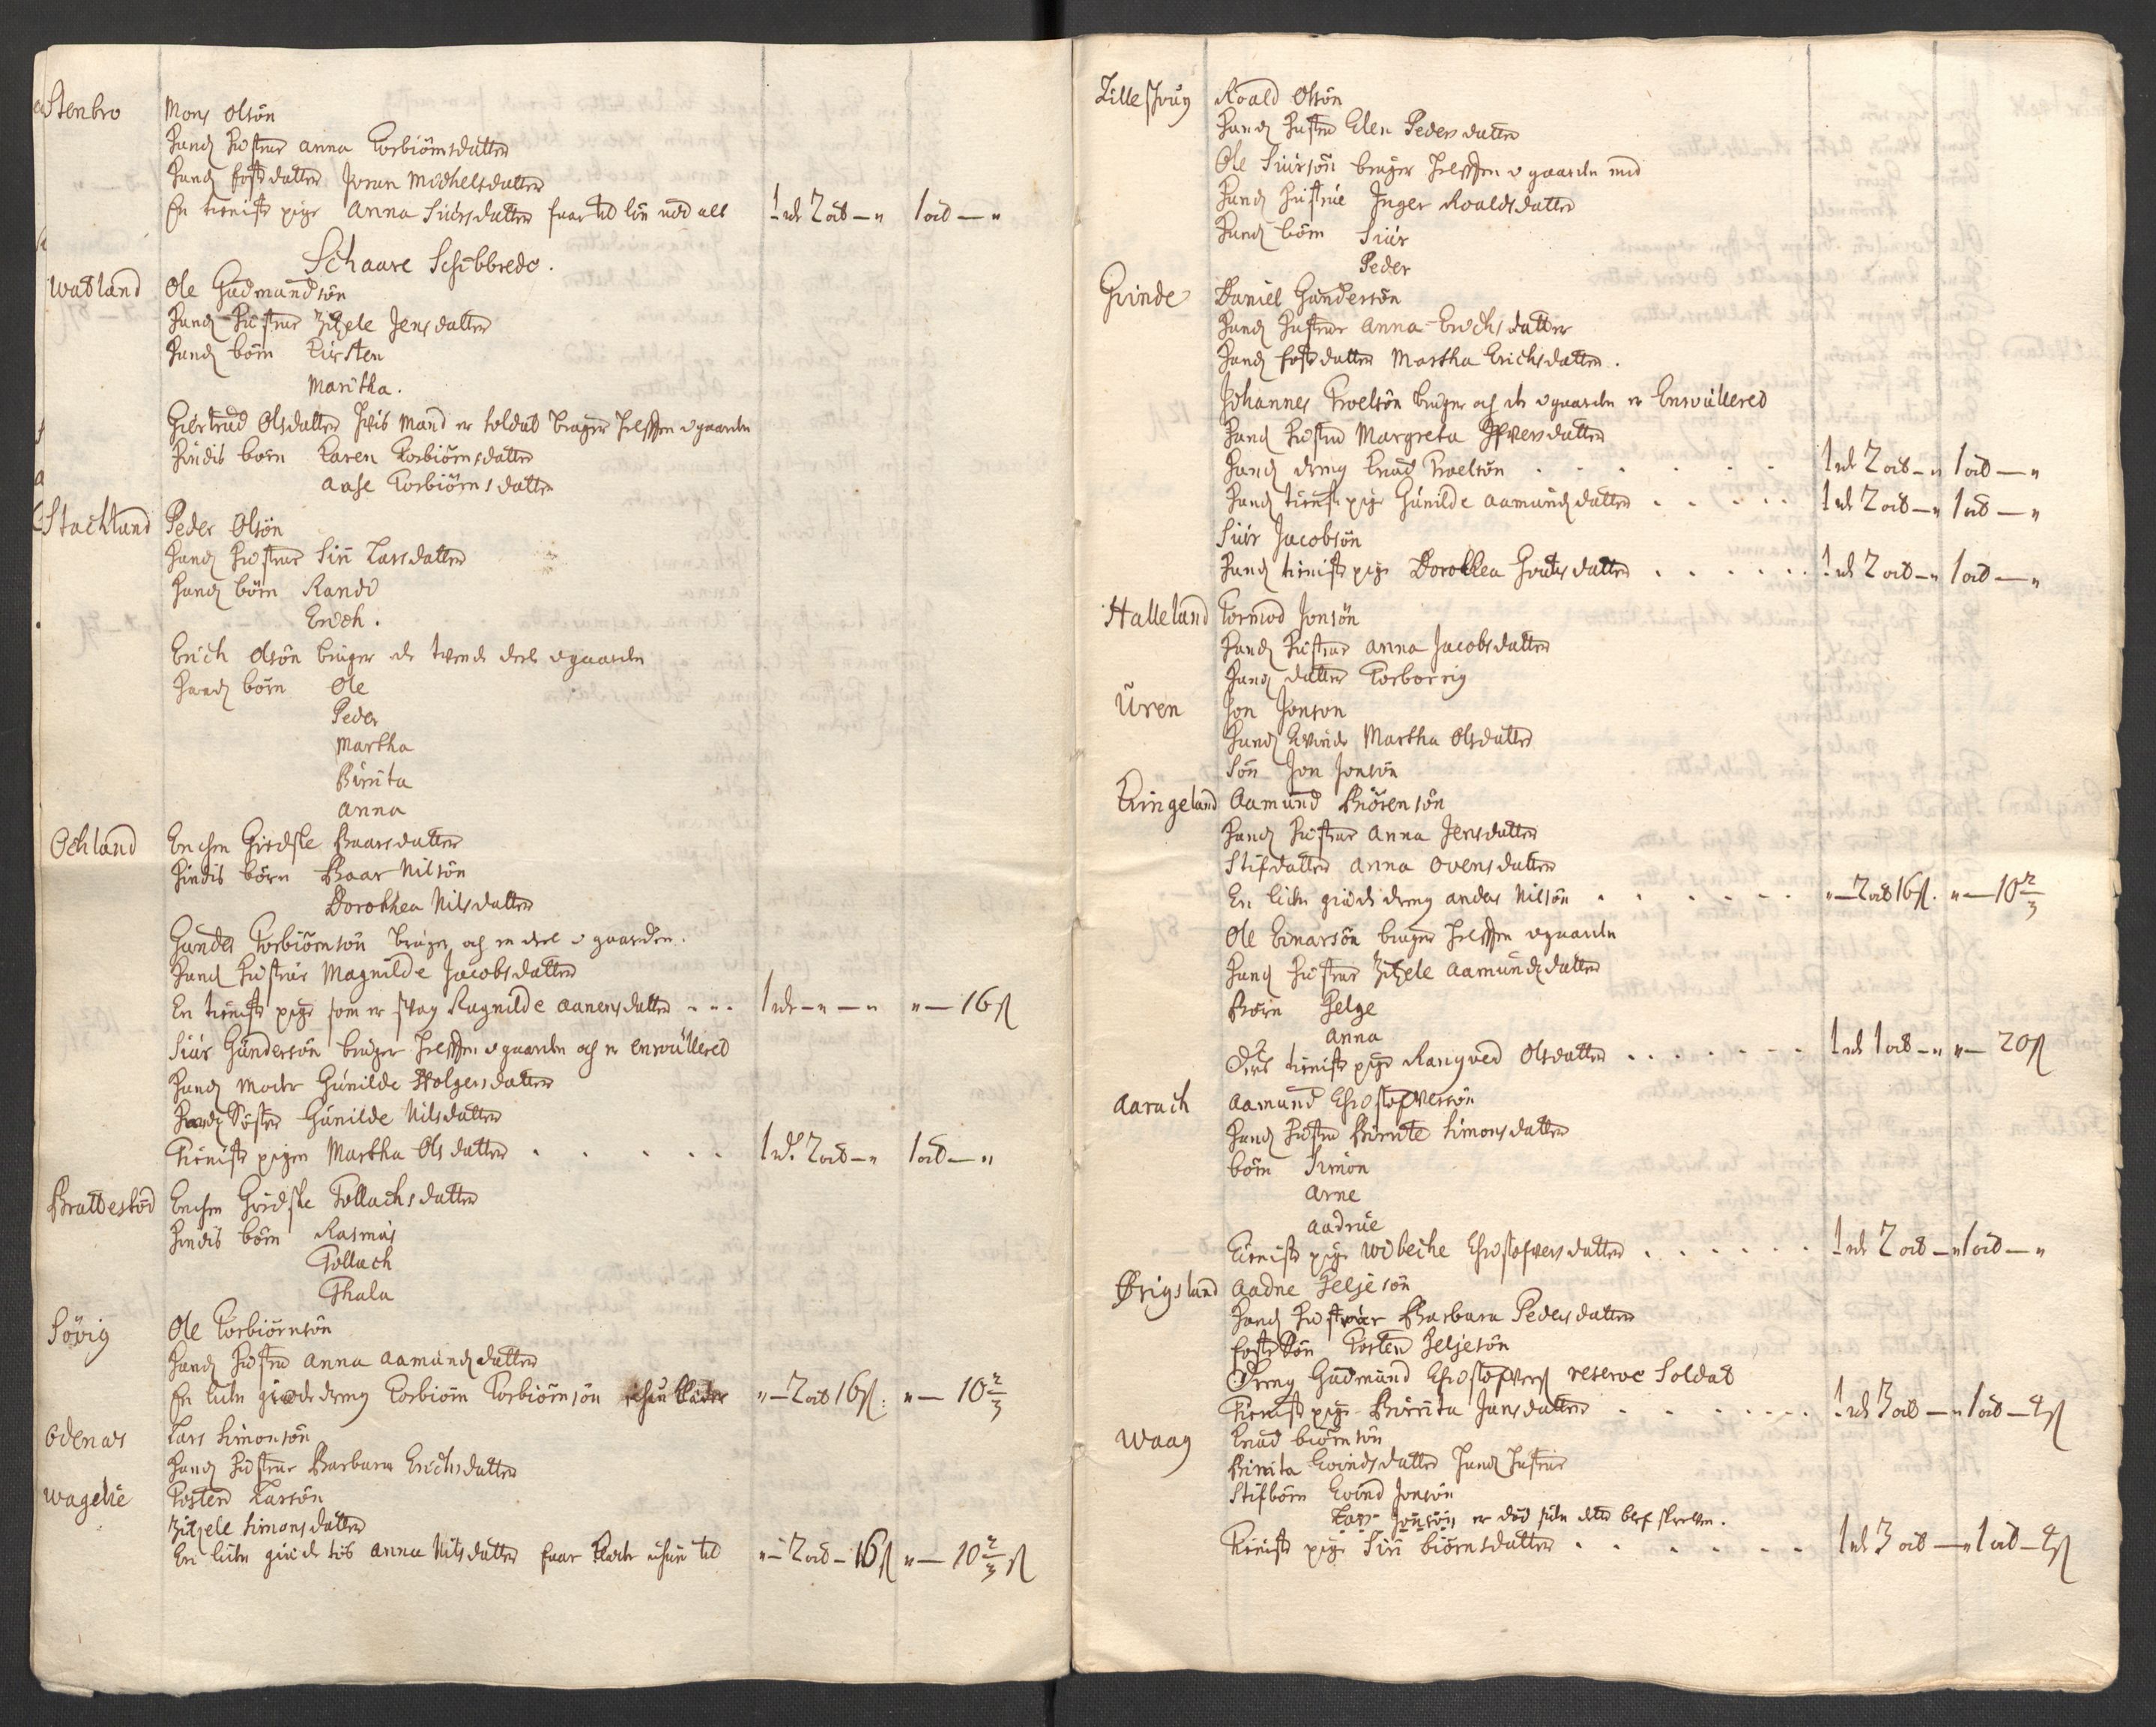 Stenbro Mons Olsön
Hands Hustrue anna Torbiörnsdatter
Hands fostdatter Joran Michelsdatter
En tienist pige Anna Siursdatter faar til lön udj alt 1 rd 2 ort — " 1 ort — "
Schaare Schibbrede.
Watland Ole Gudmundsön
Hands Hustrue Zitzele Jensdatter
Hands börn Kirsten
Maritha.
Giertrud Olsdatter hvis mand er soldat bruger helften i gaarden
Hindis börn Karen Torbiörnsdatter
Aase Torbiörnsdatter
Stachland Peder Olsön
Hands Hustrue Siri Larsdatter
Hands börn Randi
Erich.
Erich Olsön bruger de tvende deele i gaarden
Hands börn Ole
Peder
Martha
Birrita
Anna
Ochland Enchen Giedske Baarsdatter
Hindis börn Baar Nilsön
Dorothea Nilsdatter
Gunder Torbiörnsön bruger och en deel i gaarden.
Hands Hustrue Magnilde Jacobsdatter
En tienist pige som er svag Ragnilde Aanensdatter . . . 1 rd — " — " " — 16 ß
Siur Gundersön bruger helften i gaarden och er enroullered
Hands moder Gunilde Holgersdatter
Hands Söster Gunilde Nilsdatter
Tieniste pigen Martha Olsdatter . . . . . 1 rd. 2 ort — " 1 ort — "
Brattestöd Enchen Giedske Tollachsdatter
Hindis börn Rasmus
Tollach
Thala
Sövig Ole Torbiörnsön
Hands Hustrue Anna Aamundsdatter
En liden giede dreng Torbiörn Torbiörnsön " — 2 ort 16 ß. " — 10 2/3
Odenas Lars Simonsön
Hands Hustrue Barbara Erichsdatter
Wagelie Tosten Larsön
Zitzele Simonsdatter
En liden giede tös Anna Nilsdatter faar til " — 2 ort — 16 ß " — 10 2/3 ß
Lilleskoug Roald Olsön
Hands Hustrue Elen Pedersdatter
Ole Siursön bruger helften i gaarden med
Hands Hustrue Inger Roaldsdatter
Hands börn Siur
Peder
Grinde Daniel Gundersön
Hands Hustrue Anna Erichsdatter
Hands fostdatter Martha Erichsdatter.
Johannes Troelsön bruger och i gaarden er Enroullered
Hands Hustrue Margreta Ifversdatter
Hands dreng Knud Troelsön . . . . . . 1 rd 2 ort — " 1 ort — "
Hands tienist pige Gunilde Aamundsdatter . . . . . 1 rd 2 ort — " 1 ort — "
Siur Jacobsön
Hands tieniste pige Dorothea Goutesdatter . . . . . . 1 rd 2 ort — " 1 ort — "
Halleland Tormod Jonsön
Hands Hustrue Anna Jacobsdatter
Hands datter Torborrig
Uren Jon Jonson
Hands Kvinde Martha Olsdatter
Sön Jon Jonsön
Ringeland Aamund Biörensön
Hands Hustrue Anna Jensdatter
Stifdatter Anna Ovensdatter
En liden giede dreng Anders Nilsön . . . . . . " — 2 ort 16 ß. " — 10 2/3
Ole Einarsön bruger helften i gaarden
Hands Hustrue Zitzele Aamundsdatter
Börn Helge
Anna
Dirs tieniste pige Rangved Olsdatter . . . . . . . 1 rd 1 ort — " " — 20 ß
Aarach Aamund Christopversön
Hands Hustrue Birrite Simonsdatter
börn Simon
Arne
Aadrue
Tieniste pige Wibeche Christofversdatter . . . . . . 1 rd 2 ort — " 1 ort — "
Örigsland Aadne Heljesön
Hands Hustruer Barbara Pedersdatter
foster Sön Tosten Heljesön
Dreng Gudmund Christopvers reserve Soldat
Tieniste pige Birrita Jansdatter . . . . . . . 1 rd 3 ort — " 1 ort — 4 ß
Waag Knud biörnsön
Birrita Eivindsdatter Hands Hustrue
Stifbörn Eivind Jonsön
Lars Jonsön er död siden dette blef skreven.
Tieniste pige Siri biörnsdatter . . . . . . . 1 rd 3 ort — " 1 ort — 4 ß